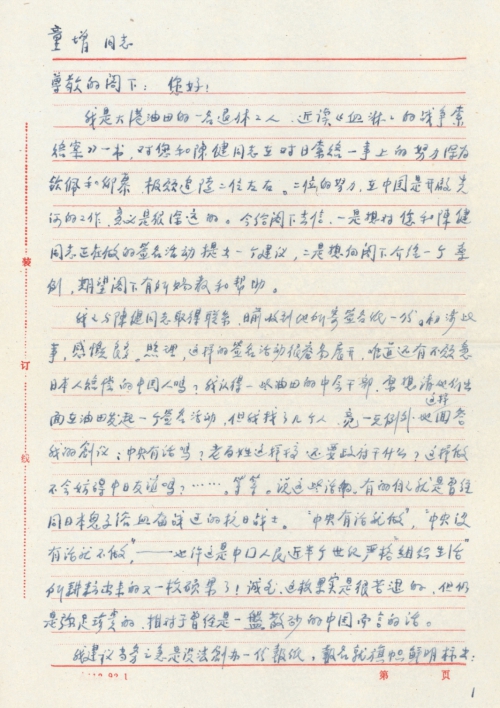 童增 同志
尊敬的阁下：您好！
我是大港油田的一名退休工人，近读《血淋的战争索
赔案》一书，对您和陈健同志在对日索赔一事上的努力深为
钦佩和仰慕，极欲追随二位左右。二位的努力，在中国是开启先
河的工作，意义是很深远的。今给阁下去信，一是想对您和陈健
同志正在做的签名活动提出一个建议，二是想向阁下介绍一个案
例，期望阁下有所赐教和帮助。
我已与陈健同志取得联系，日前收到他所寄签名纸一份。初涉此
事，感慨良多。照理，这样的签名活动很容易展开，难道还有不愿意
日本人赔偿的中国人吗？我认得一些油田的中层干部，您想请他们出
面在油田发起一个签名活动，但我找了几个人，竟一无例外地这样回答
我的创议：中央有话吗？老百姓这样搞还要政府干什么？这样做
不会妨碍中日友谊吗？……等等。说这些话的，有的人就是曾经
同日本鬼子浴血奋战过的抗日战士。“中央有话我做”，“中央没
有话我不做”——也许这是中国人民近半个世纪严格“组织生活”
所耕耘出来的又一枚硕果了！诚乞，这枚果实是很苦涩的，但仍
是弥足珍贵的，相对于曾经是一盘散沙的中国而言的话。
我建议当务之急是设法创办一份报纸，报名就旗帜鲜明标出：
装
订
线
第 页
1